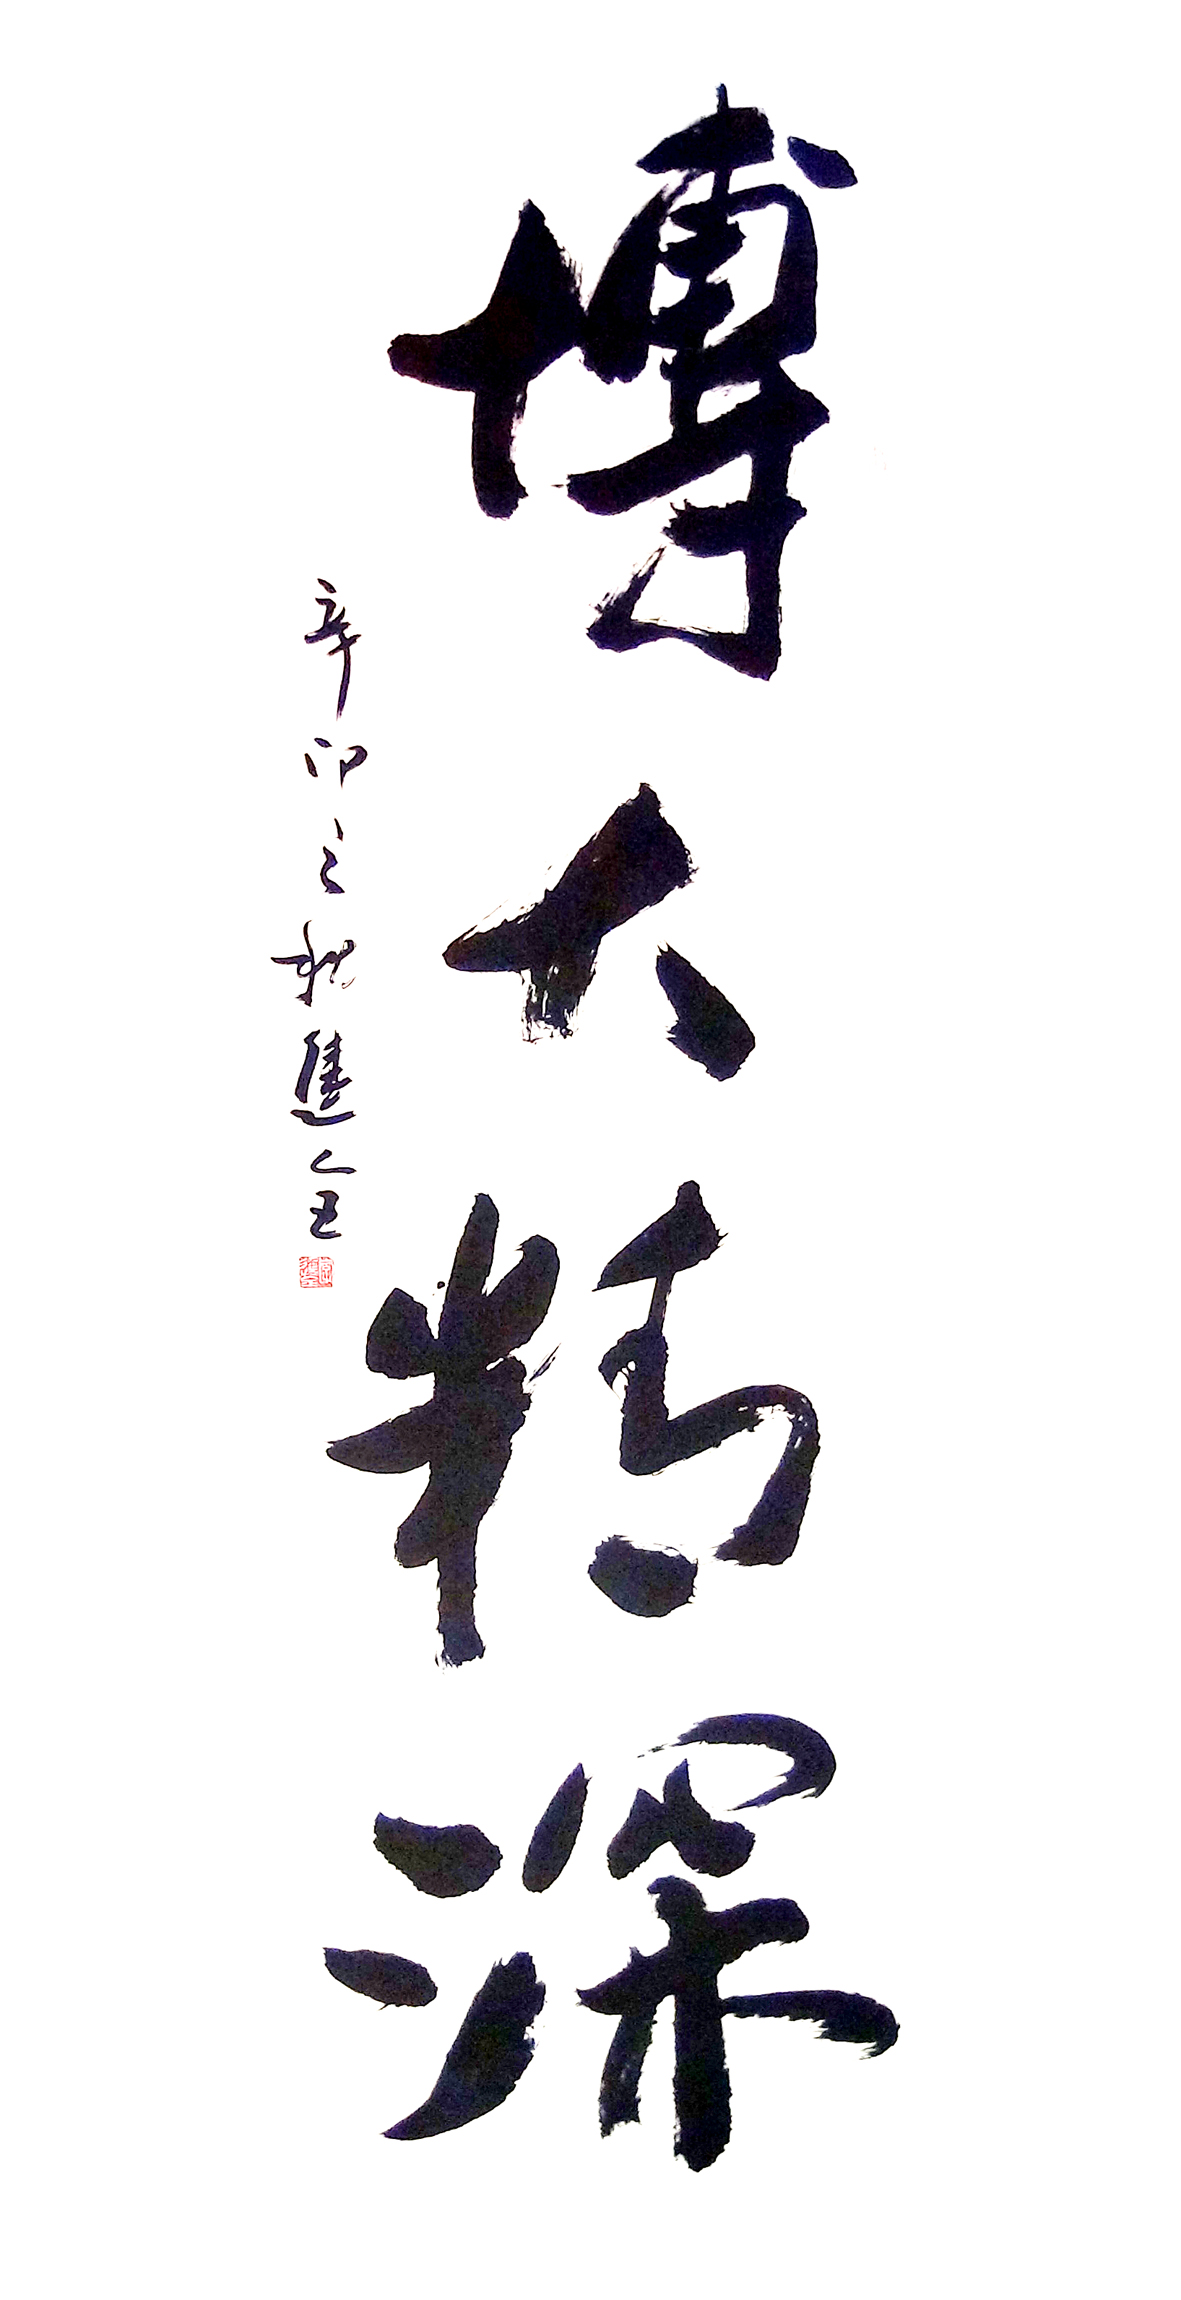 博大精深
辛卯之秋進